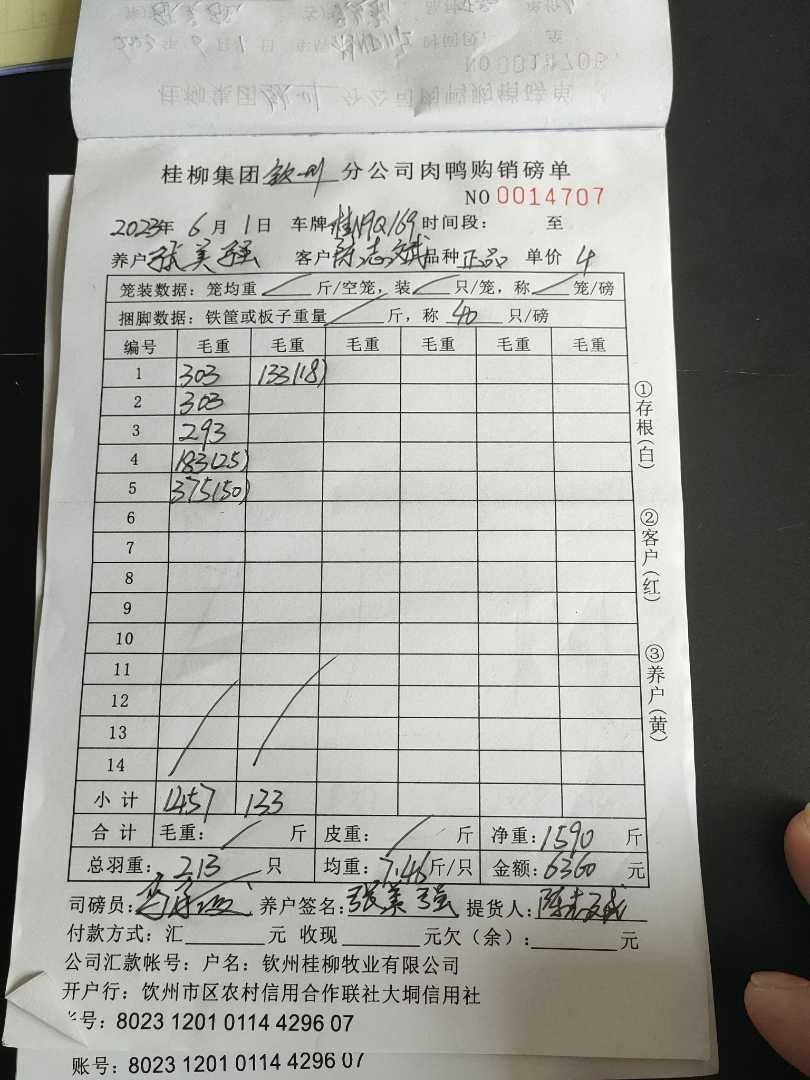 桂柳集团钦州分公司肉鸭购销磅单
NO 0014707
2023年6月1日 车牌桂N9Q169时间段: 至
养户张美强 客户陈志斌品种正品 单价4
笼装数据:笼均重 斤/空笼,装 只/笼,称 笼/磅
捆脚数据:铁筐或板子重量 斤,称 40 只/磅
编号 毛重 毛重 毛重 毛重 毛重 毛重
1 303 133(18)
2 303
3 293
4 183(25)
5 375(50)
6
7
8
9
10
11
12
13
14
小计 1457 133
合计 毛重: 斤 皮重: 斤 净重:1590 斤
总羽重:213 只 均重:7.46斤/只 金额:6360 元
司磅员: 养户签名:张美强 提货人:陈志斌
付款方式:汇 元 收现 元欠(余): 元
公司汇款帐号:户名:钦州桂柳牧业有限公司
开户行:钦州市区农村信用合作联社大垌信用社
号:8023 1201 0114 4296 07
账号:8023 1201 0114 4296 07
①存根(白)
②客户(红)
③养户(黄)